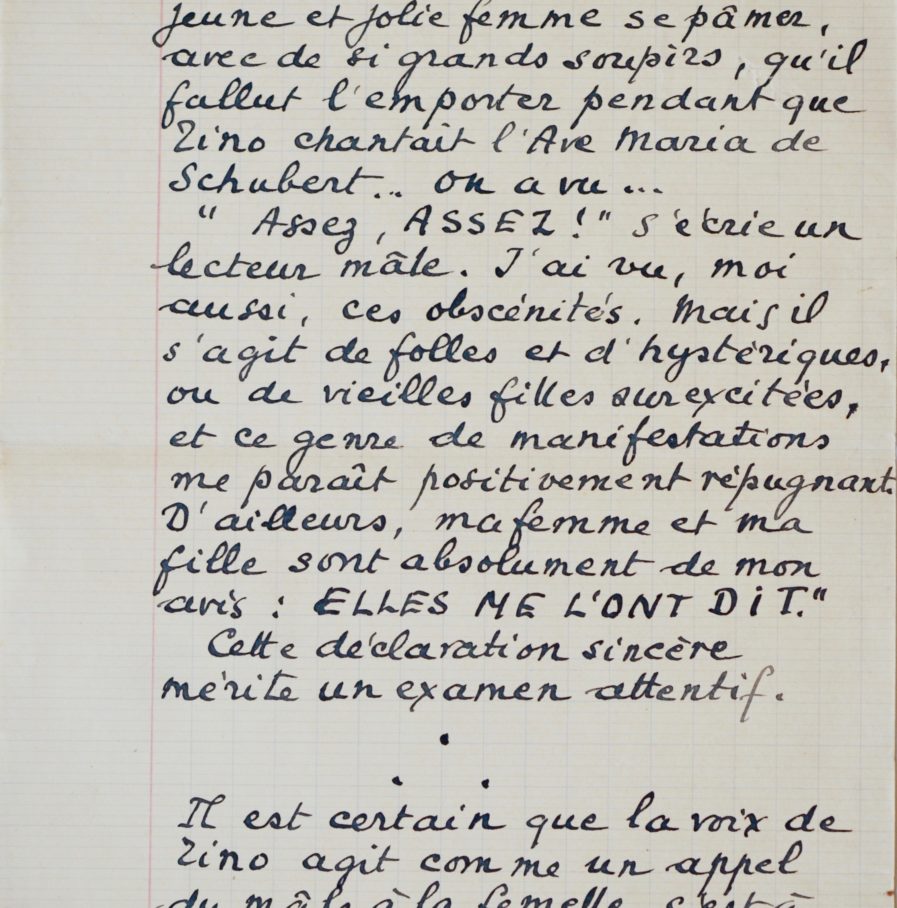 jeune et jolie femme se pâmer,
avec de si grands soupirs, qu'il
fallut l'emporter pendant que
Tino chantait l'Ave Maria de
Schubert... on a vu...
" Assez, ASSEZ !" s'écrie un
lecteur mâle. J'ai vu, moi
aussi, ces obscénités. Mais il
s'agit de folles et d'hystériques,
ou de vieilles filles surexcitées,
et ce genre de manifestations
me paraît positivement répugnant.
D'ailleurs, ma femme et ma
fille sont absolument de mon
avis : ELLES ME L'ONT DIT."
Cette déclaration sincère
mérite un examen attentif.
Il est certain que la voix de
Tino agit comme un appel
du mâle à la femelle, c'est à